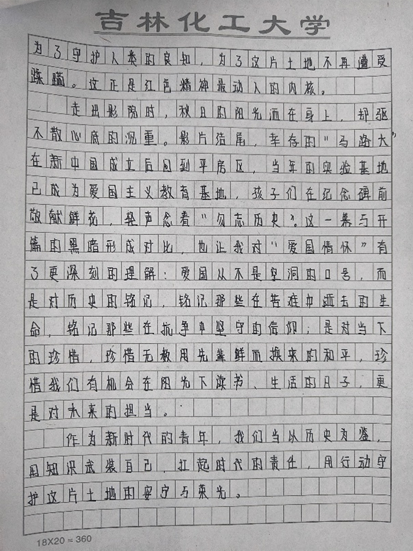 吉林化工大学
为了守护人类的良知，为了这片土地不再遭受
蹂躏。这正是红色精神最动人的内核。
走出影院时，秋日的阳光洒在身上，却驱
不散心底的沉重。影片结尾，幸存的"马路大"
在新中国成立后回到平房区，当年的实验基地
已成为爱国主义教育基地，孩子们在纪念碑前
敬献鲜花，轻声念着"勿忘历史"。这一幕与开
篇的黑暗形成对比，也让我对"爱国情怀"有
了更深刻的理解：爱国从不是空洞的口号，而
是对历史的铭记，铭记那些在苦难中逝去的生
命，铭记那些在抗争中坚守的信仰；是对当下
的珍惜，珍惜无数用先辈鲜血换来的和平，珍
惜我们有机会在阳光下读书、生活的日子，更
是对未来的担当。
作为新时代的青年，我们当从历史为鉴，
用知识武装自己，扛起时代的责任，用行动守
护这片土地的安宁与荣光。
18×20=360